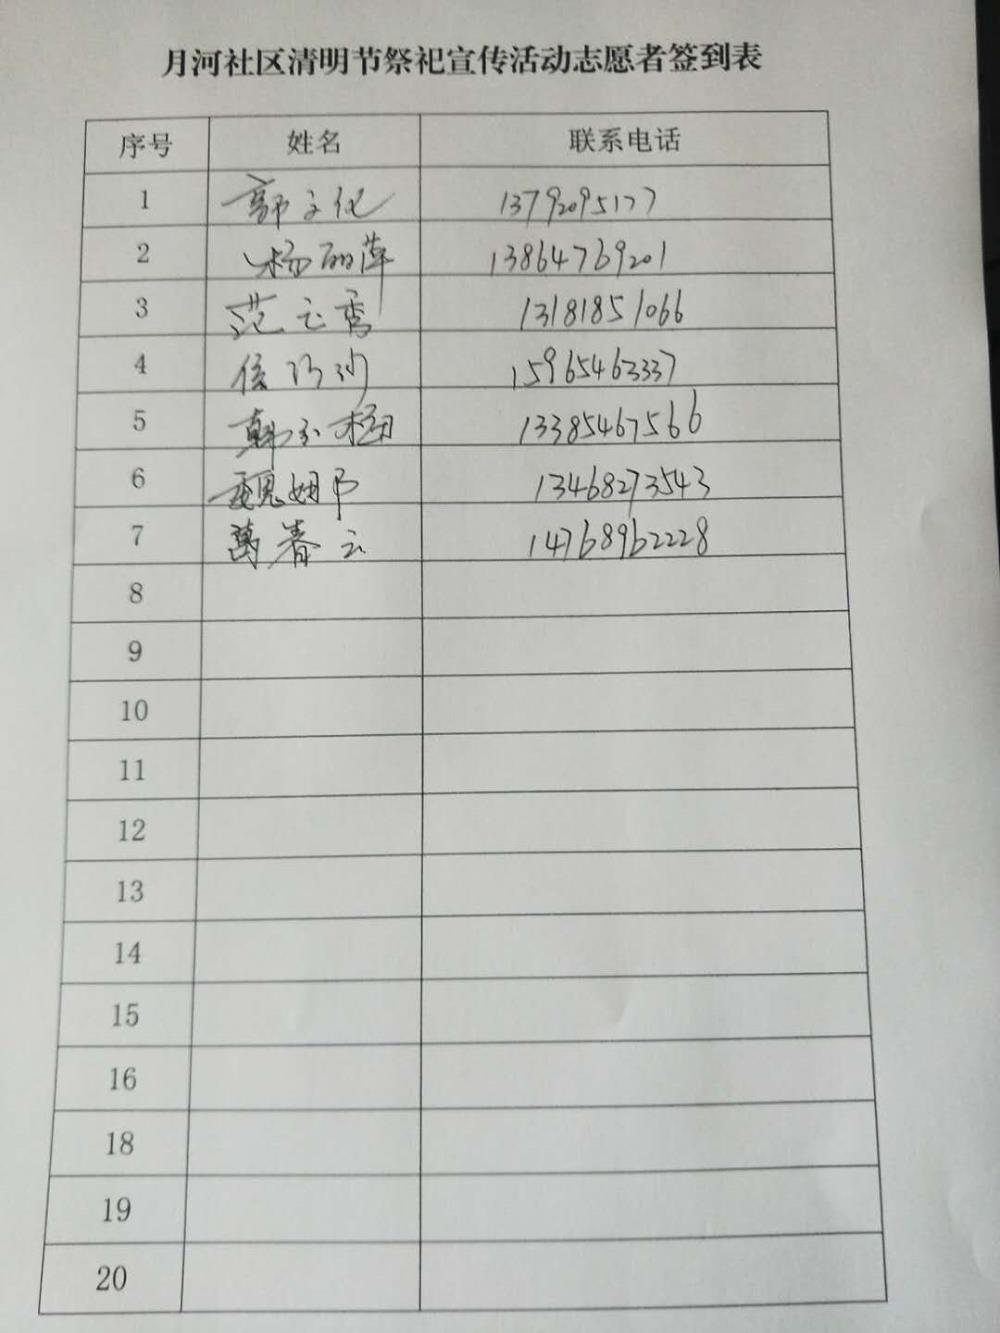 月河社区清明节祭祀宣传活动志愿者签到表
序号 姓名 联系电话
1 郭文化 13792095177
2 杨丽萍 13864769201
3 范玉鸾 13181851066
4 侯 15965463337
5 韩 13385467566
6 魏 13468273543
7 葛春云 14768962228
8
9
10
11
12
13
14
15
16
18
19
20